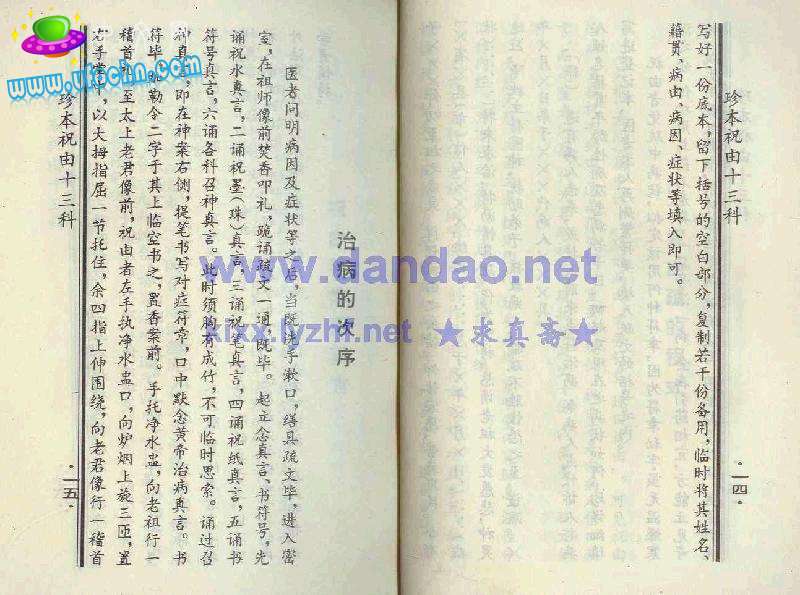 珍本祝由十三科
·一四·
写好一份底本，留下括号的空白部分，复制若干份备用，临时将其姓名、
籍贯、病由、病因、症状等填入即可。
治病的次序
医者问明病因及症状等之后，当既洗手漱口，缮具疏文毕，进入密
室，在祖师像前焚香叩礼，跪诵疏文一通，既毕。起立念真言、书符号，先
诵祝水真言，二诵祝墨(珠)真言，三诵祝笔真言，四诵祝纸真言，五诵书
符号真言，六诵各科召神真言。此时须胸有成竹，不可临时思索。诵过召
神真言，即在神案右侧，提笔书写对症符章，口中默念黄帝治病真言。书
符毕，敕勒令二字于其上临空书之，置香案前。手托净水盅，向老祖行一
稽首礼，至太上老君像前，祝由者左手执净水盅口，向炉烟上旋三匝，置
右手掌，以大拇指屈一节托住，余四指上伸围绕，向老君像行一稽首
珍本祝由十三科
·一五·
www.utcchn.com
www.dandao.net
xixx.lyzhl.net ★求真斋★